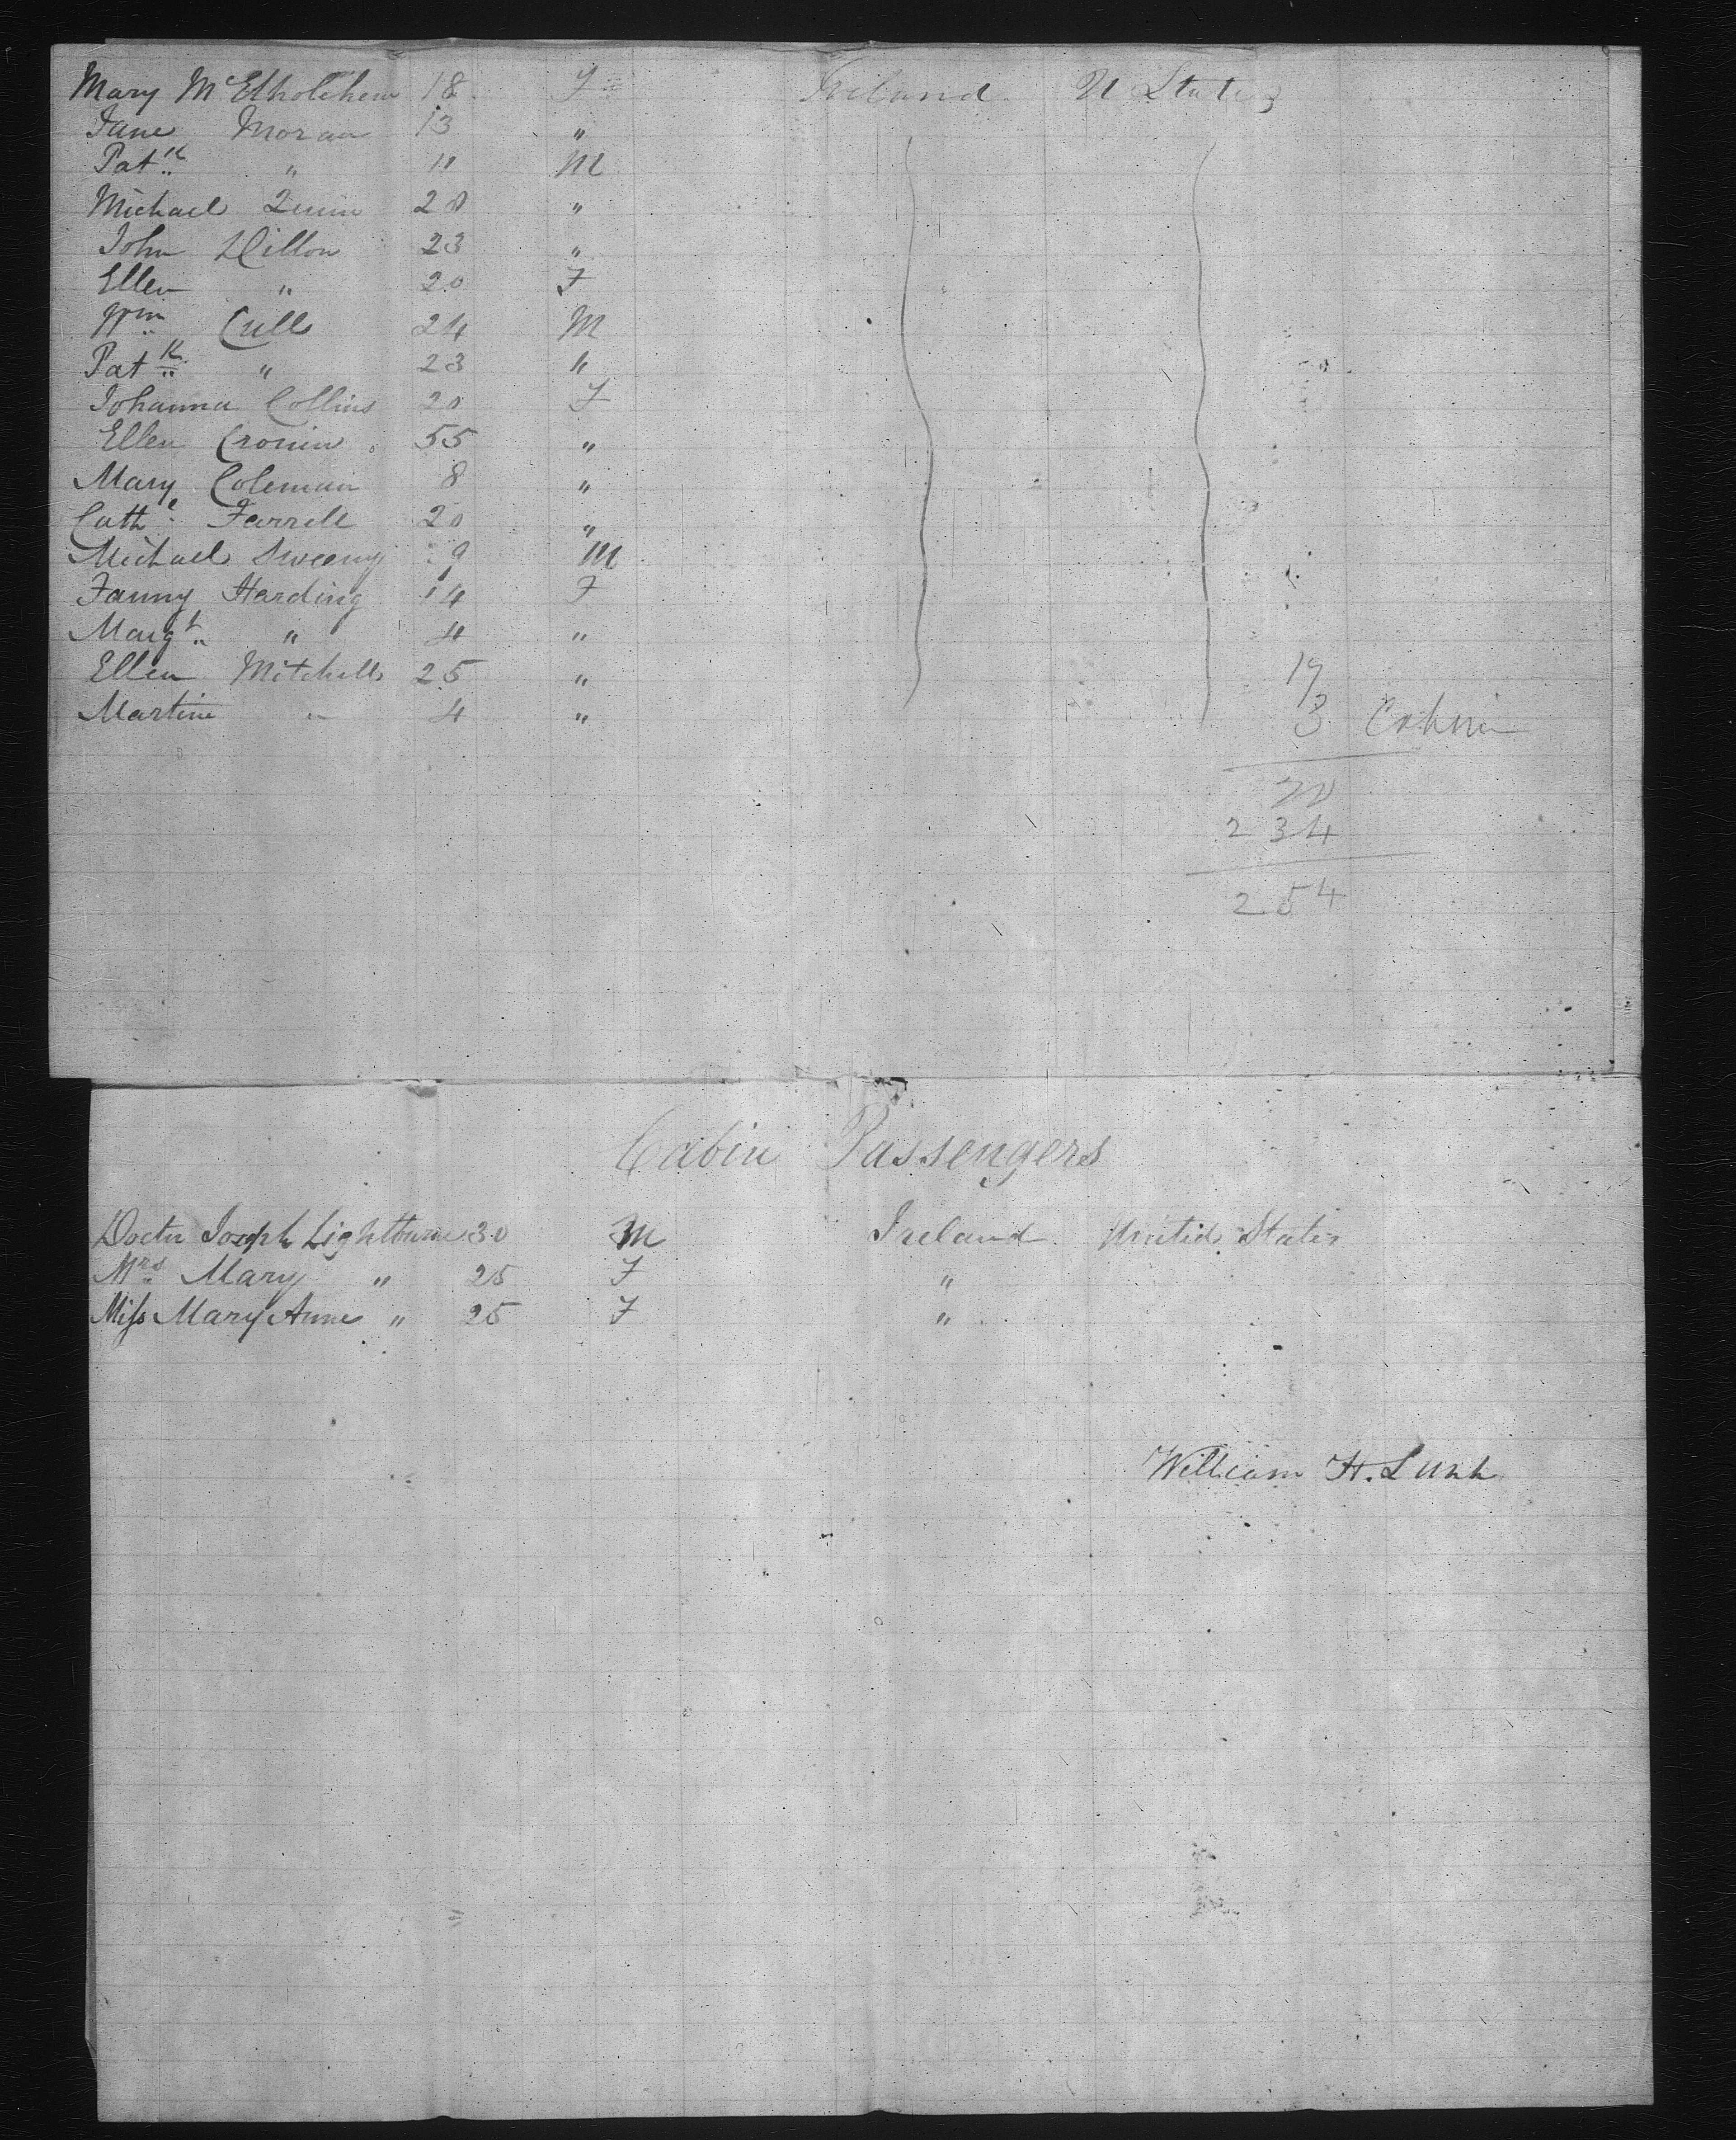 Mary McElholchew 18 F Ireland U States
Jane Moran 13 "
Patk " 11 M
Michael Quinn 20 "
John Dillon 23 "
Ellen " 20 F
Wm Cull 24 M
Patk " 23 "
Johanna Collins 20 F
Ellen Cronin 55 "
Mary Coleman 8 "
Cathe Farrell 20 "
Michael Sweeny 9 M
Fanny Harding 14 F
Margt " 4 "
Ellen Mitchell 25 " 17
Martine " 4 " 3 Cabin
20
234
254
Cabin Passengers
Doctor Joseph Lightburne 30 M Ireland United States
Mrs Mary " 25 F "
Miss Mary Anne " 25 F "
William H. Lunt